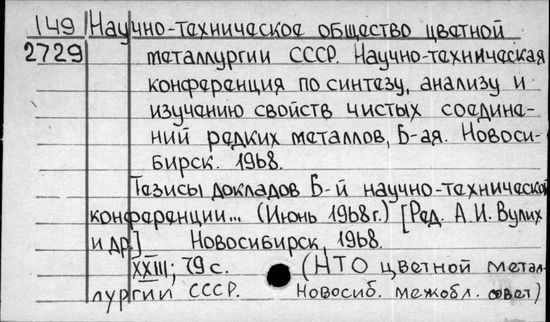 149 Научно-техническое общество цветной
2729 металлургии СССР. Научно-техническая
конференция по синтезу, анализу и
изучению свойств чистых соедине-
ний редких металлов, 6-ая. Новоси-
бирск. 1968.
Тезисы докладов 6-й научно-технической
конференции... (Июнь 1968г.) [Ред. А.И. Вулих
и др.] Новосибирск, 1968.
XXIII; 79 с. (НТО цветной метал-
лургии СССР. Новосиб. межобл. совет)